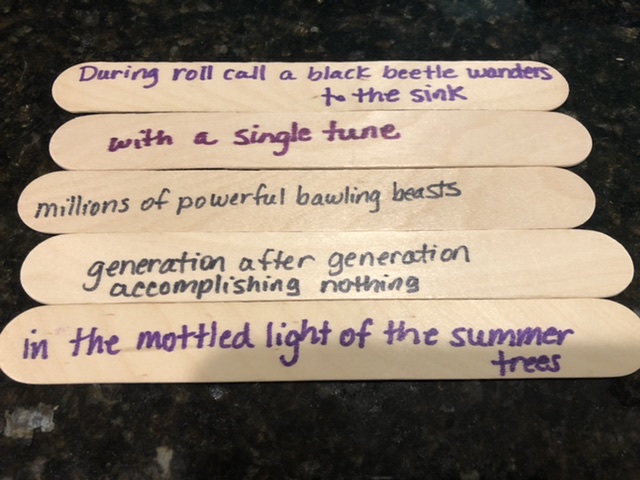 During roll call a black beetle wanders
to the sink
with a single tune
millions of powerful bawling beasts
generation after generation
accomplishing nothing
in the mottled light of the summer
trees